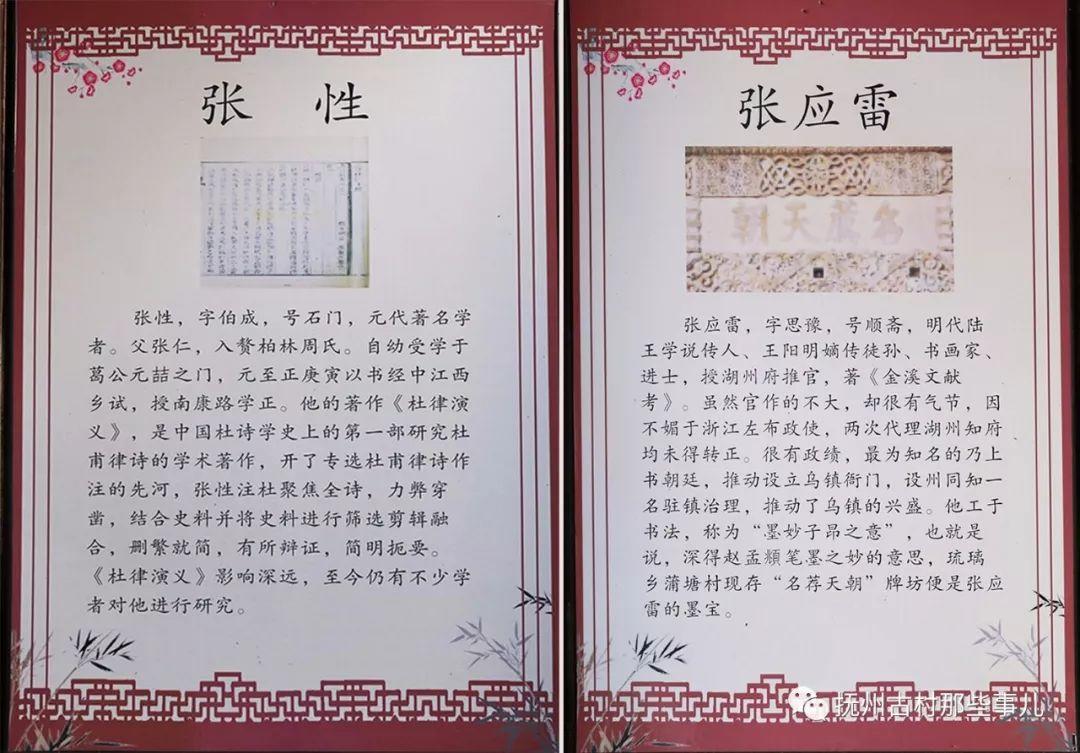 张 性
张性，字伯成，号石门，元代著名学
者。父张仁，入赘柏林周氏。自幼受学于
葛公元喆之门，元至正庚寅以书经中江西
乡试，授南康路学正。他的著作《杜律演
义》，是中国杜诗学史上的第一部研究杜
甫律诗的学术著作，开了专选杜甫律诗作
注的先河，张性注杜聚焦全诗，力弊穿
凿，结合史料并将史料进行筛选剪辑融
合，删繁就简，有所辩证，简明扼要。
《杜律演义》影响深远，至今仍有不少学
者对他进行研究。
张应雷
名荐天朝
张应雷，字思豫，号顺斋，明代陆
王学说传人、王阳明嫡传徒孙、书画家、
进士，授湖州府推官，著《金溪文献
考》。虽然官作的不大，却很有气节，因
不媚于浙江左布政使，两次代理湖州知府
均未得转正。很有政绩，最为知名的乃上
书朝廷，推动设立乌镇衙门，设州同知一
名驻镇治理，推动了乌镇的兴盛。他工于
书法，称为“墨妙子昂之意”，也就是
说，深得赵孟頫笔墨之妙的意思，琉璃
乡蒲塘村现存“名荐天朝”牌坊便是张应
雷的墨宝。
抚州古村那些事儿